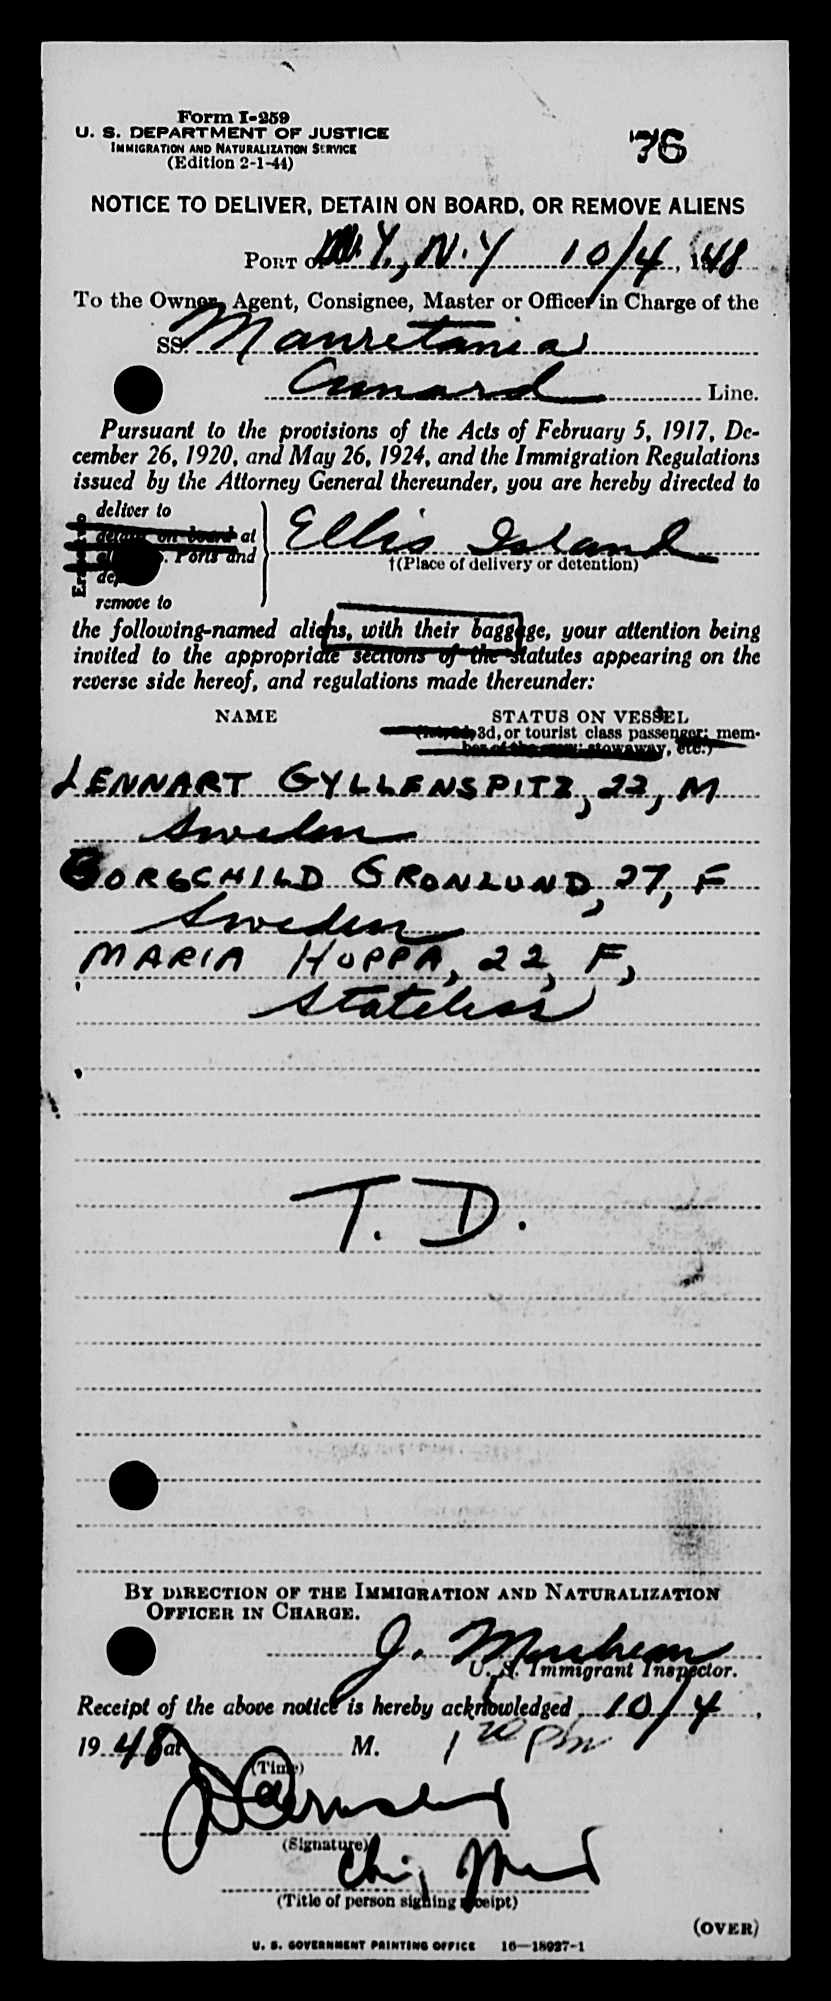 Form I-259
U. S. DEPARTMENT OF JUSTICE
IMMIGRATION AND NATURALIZATION SERVICE
(Edition 2-1-44)
76
NOTICE TO DELIVER, DETAIN ON BOARD, OR REMOVE ALIENS
PORT OF N.Y., N.Y 10/4, 1948
To the Owner, Agent, Consignee, Master or Officer in Charge of the
SS. Mauretania
Cunard Line.
Pursuant to the provisions of the Acts of February 5, 1917, De-
cember 26, 1920, and May 26, 1924, and the Immigration Regulations
issued by the Attorney General thereunder, you are hereby directed to
deliver to
detain on board at
Ports and
remove to
Ellis Island
†(Place of delivery or detention)
the following-named aliens, with their baggage, your attention being
invited to the appropriate sections of the statutes appearing on the
reverse side hereof, and regulations made thereunder:
NAME STATUS ON VESSEL
3d, or tourist class passenger; mem-
ber of the crew; stowaway, etc.)
LENNART GYLLENSPITZ, 22, M
Sweden
BORGCHILD GRONLUND, 27, F
Sweden
MARIA HOPPA, 22, F,
Stateless
T. D.
BY DIRECTION OF THE IMMIGRATION AND NATURALIZATION
OFFICER IN CHARGE.
J.
U. S. Immigrant Inspector.
Receipt of the above notice is hereby acknowledged 10/4,
1948 at M. 1 20 pm
(Time)
(Signature)
(Title of person signing receipt)
(OVER)
U. S. GOVERNMENT PRINTING OFFICE 16—18927-1